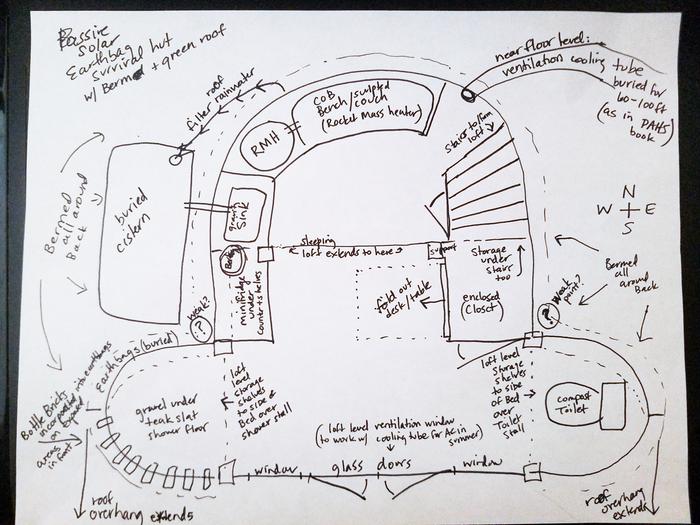 Passive
Solar
Earthbag
survival hut
w/ Bermed + green roof
near floor level:
ventilation cooling tube
buried for
60-100ft
(as in PAHS
book
roof
filter rainwater
COB
Bench/sculpted
couch
(Rocket Mass heater)
RMH
Stairs to/from
loft
Bermed
all around
Back
buried
cistern
gravity
Sink
N
W E
S
sleeping
loft extends to here
support
Storage
under
stair
too
Bermed
all
around
Back
minifridge
under
counter & shelves
fold out
desk/table
enclosed
(closet)
weak?
?
Weak
point?
?
Earthbags (buried)
Bottle Bricks
incorporated into earthbags
on exposed
areas
in front
gravel under
teak slat
shower floor
loft
level
storage
shelves
to side of
Bed over
shower stall
(loft level ventilation window
to work w/ cooling tube for AC in
summer)
loft level
Storage
shelves
to side
of Bed
over
Toilet
stall
compost
Toilet
window glass doors window
roof
overhang extends
roof
overhang
extends